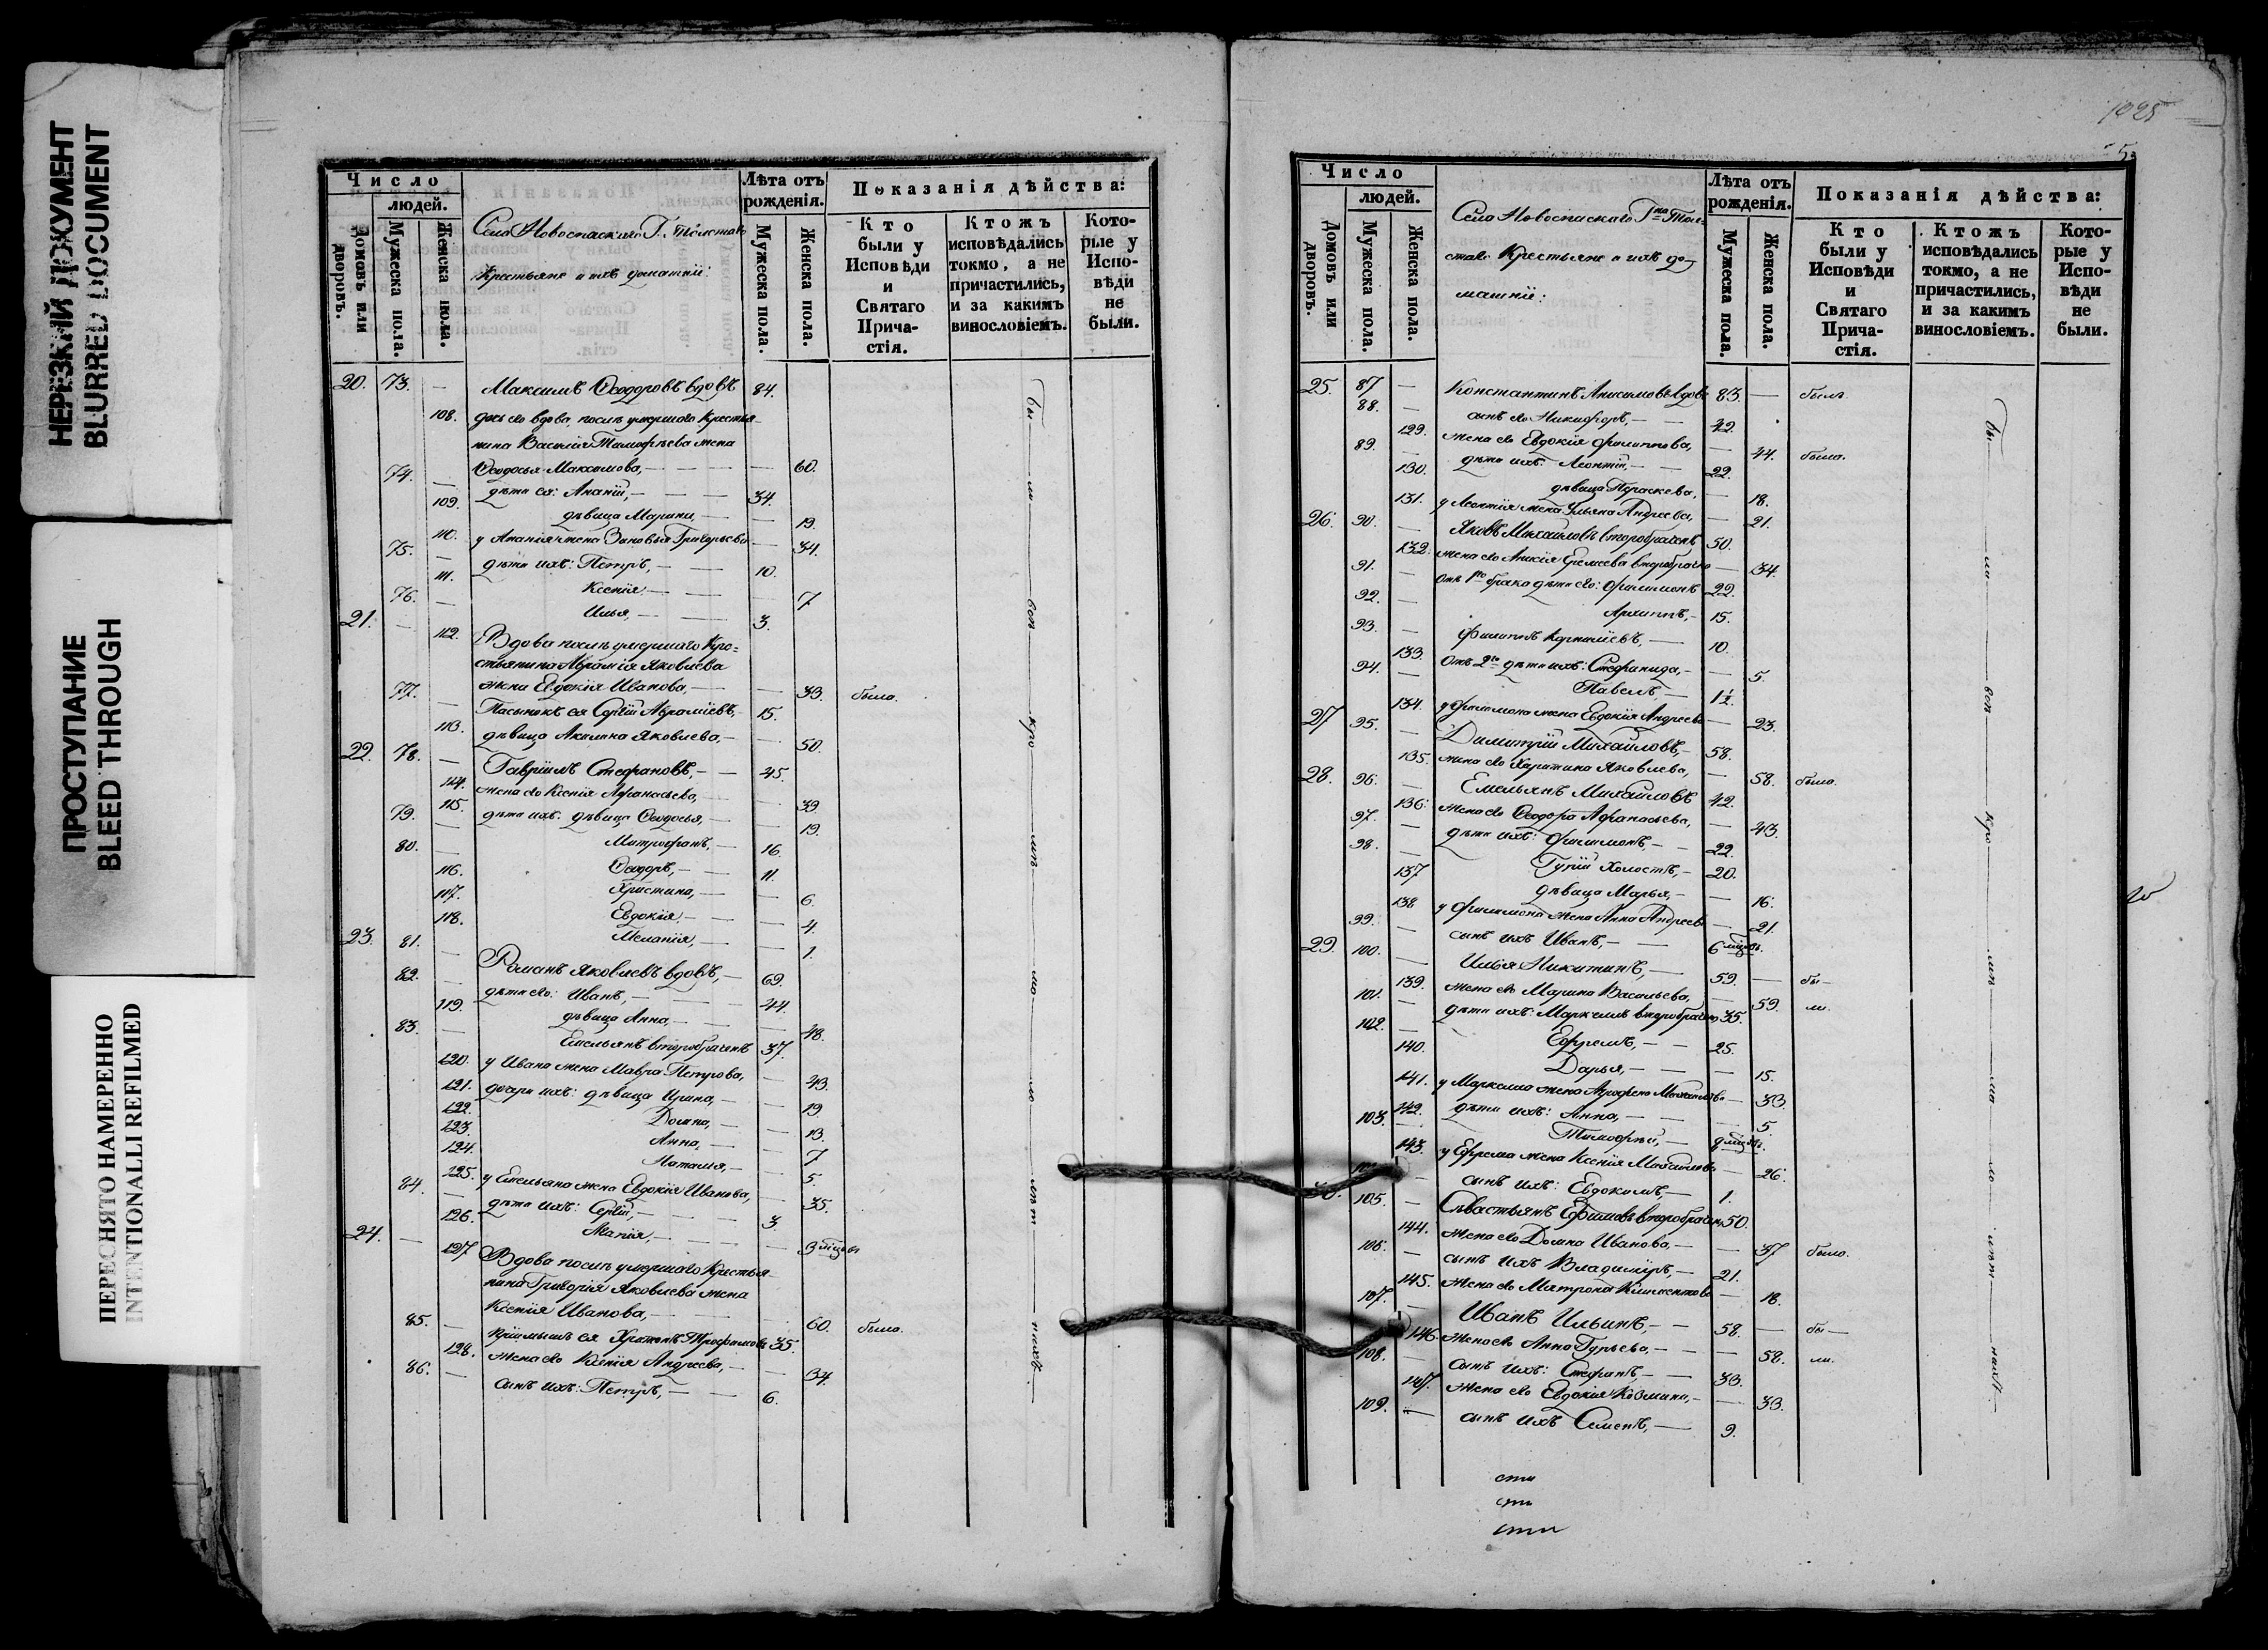 НЕРЕЗКИЙ ДОКУМЕНТ
BLURRED DOCUMENT
ПРОСТУПАНИЕ
BLEED THROUGH
ПЕРЕСНЯТО НАМЕРЕННО
INTENTIONALLI REFILMED
Число
людей.
Домовъ или дворовъ.
Мужеска пола.
Женска пола.
Села Новоспаскаго Г. Толстаго
Крестьяне и ихъ домашніи:
Лѣта отъ рожденія.
Мужеска пола.
Женска пола.
Показанія дѣйства:
Кто были у Исповѣди и Святаго Причастія.
Ктожъ исповѣдались токмо, а не причастились, и за какимъ винословіемъ.
Которые у Исповѣди не были.
20. 73. — Максимъ Ѳеодоровъ вдовъ 84.
108. дочь его вдова, послѣ умершаго крестья-
нина Василія Тимофѣева жена
Ѳеодосья Максимова, — — 60.
74. — дѣти ея: Ананій, — 34.
109. дѣвица Марина, — — 19.
110. у Ананія жена Зиновья Григорьева — 34.
75. — дѣти ихъ: Петръ, — 10.
111. Ксенія, — — 7
76. — Илья, — 3.
21. — 112. Вдова послѣ умершаго Кре=
стьянина Аврамія Яковлева
жена Евдокія Иванова, — — 33. была.
77. — Пасынокъ ея Сергій Авраміевъ, — 15.
113. дѣвица Акилина Яковлева, — — 50.
22. 78. — Гавріилъ Стефановъ, — 45.
114. жена его Ксенія Афанасьева, — 39.
115. дѣти ихъ: дѣвица Ѳеодосья, — — 19.
79. — Митрофанъ, — 16.
80. — Ѳеодоръ, — 11.
116. Христина, — — 6.
117. Евдокія, — — 4.
118. Меланія, — — 1.
23. 81. — Романъ Яковлевъ вдовъ, — 69.
82. — дѣти его: Иванъ, — 44.
119. дѣвица Анна, — — 48.
83. — Емельянъ второбраченъ 37.
120. у Ивана жена Мавра Петрова, — 43.
121. дочери ихъ: дѣвица Ирина, — — 19
122. Домна, — — 13.
123. Анна, — — 7
124. Наталья, — — 5.
125. у Емельяна жена Евдокія Иванова, — 35.
84. — дѣти ихъ: Сергій, — 3.
126. Марія, — — 3 мѣсяцы
24. — 127. Вдова послѣ умершаго Крестья-
нина Григорія Яковлева жена
Ксенія Иванова, — — 60. была.
85. — Пріимышъ ея Трофимовъ 35.
128. жена его Ксенія Андреева, — — 34.
86. — сынъ ихъ: Петръ, — 6.
1025
5.
Число
людей.
Домовъ или дворовъ.
Мужеска пола.
Женска пола.
Села Новоспаскаго Г-на Тол-
стаго Крестьяне и ихъ до-
машніи:
Лѣта отъ рожденія.
Мужеска пола.
Женска пола.
Показанія дѣйства:
Кто были у Исповѣди и Святаго Причастія.
Ктожъ исповѣдались токмо, а не причастились, и за какимъ винословіемъ.
Которые у Исповѣди не были.
25. 87 — Константинъ Анисимовъ вдовъ 83. — былъ.
88. — сынъ его Никифоръ, — 42.
129. жена его Евдокія Филиппова, — 44. была.
89. — дѣти ихъ: Леонтій, — 22.
130. дѣвица Параскева, — 18.
131. у Леонтія жена Ульяна Андреева, — 21.
26. 90. — Яковъ Михайловъ второбраченъ 50.
132. жена его Еремеева второбрачна — 34.
91. — Отъ 1го брака дѣти его: Филимонъ 22.
92. — Архиппъ, — 15.
93. — Филиппъ Корниліевъ, — 10.
133. Отъ 2го дѣти ихъ: Стефанида, — — 5.
94. — Павелъ, — 1½.
134. у Филимона жена Евдокія Андреева — 23.
27 95. — Димитрій Михайловъ, — 58.
135. жена его Харитина Яковлева, — 58. была.
28. 96. — Емельянъ Михайловъ 42.
136. жена его Ѳеодора Афанасьева, — 43.
97. — дѣти ихъ: Филимонъ, — 22.
98. — Гурій холостъ, — 20.
137 дѣвица Марья, — — 16.
138 у Филимона жена Анна Андреева — 21.
99. — сынъ ихъ Иванъ, — 6 мѣсяцевъ.
29. 100. — Илья Никитинъ, — 59. — бы—
139. жена его Марина Васильева, — 59. ли.
101. — дѣти ихъ: Маркеллъ второбраченъ 35.
102. — Ефремъ, — 25.
140. Дарья, — — 15.
141. у Маркелла жена Агрофена Михайлова — 33.
142. дѣти ихъ: Анна, — — 5
103. — Тимофѣй, —
143. у Ефрема жена Ксенія Михайлова — 26.
— сынъ ихъ: Евдокимъ, — 1.
105. — Севастьянъ Ефимовъ второбраченъ 50.
144. жена его Домна Иванова, — — 37 была.
106. — сынъ ихъ Владимиръ, — 21.
145. жена его Матрона Климентова — 18.
107. — Иванъ Ильинъ, — 58. — бы—
146. жена его Анна Гурьева, — — 58. ли.
108. — сынъ ихъ: Стефанъ, — 33.
147. жена его Евдокія Козмина, — — 33.
109. — сынъ ихъ Семенъ, — 9.